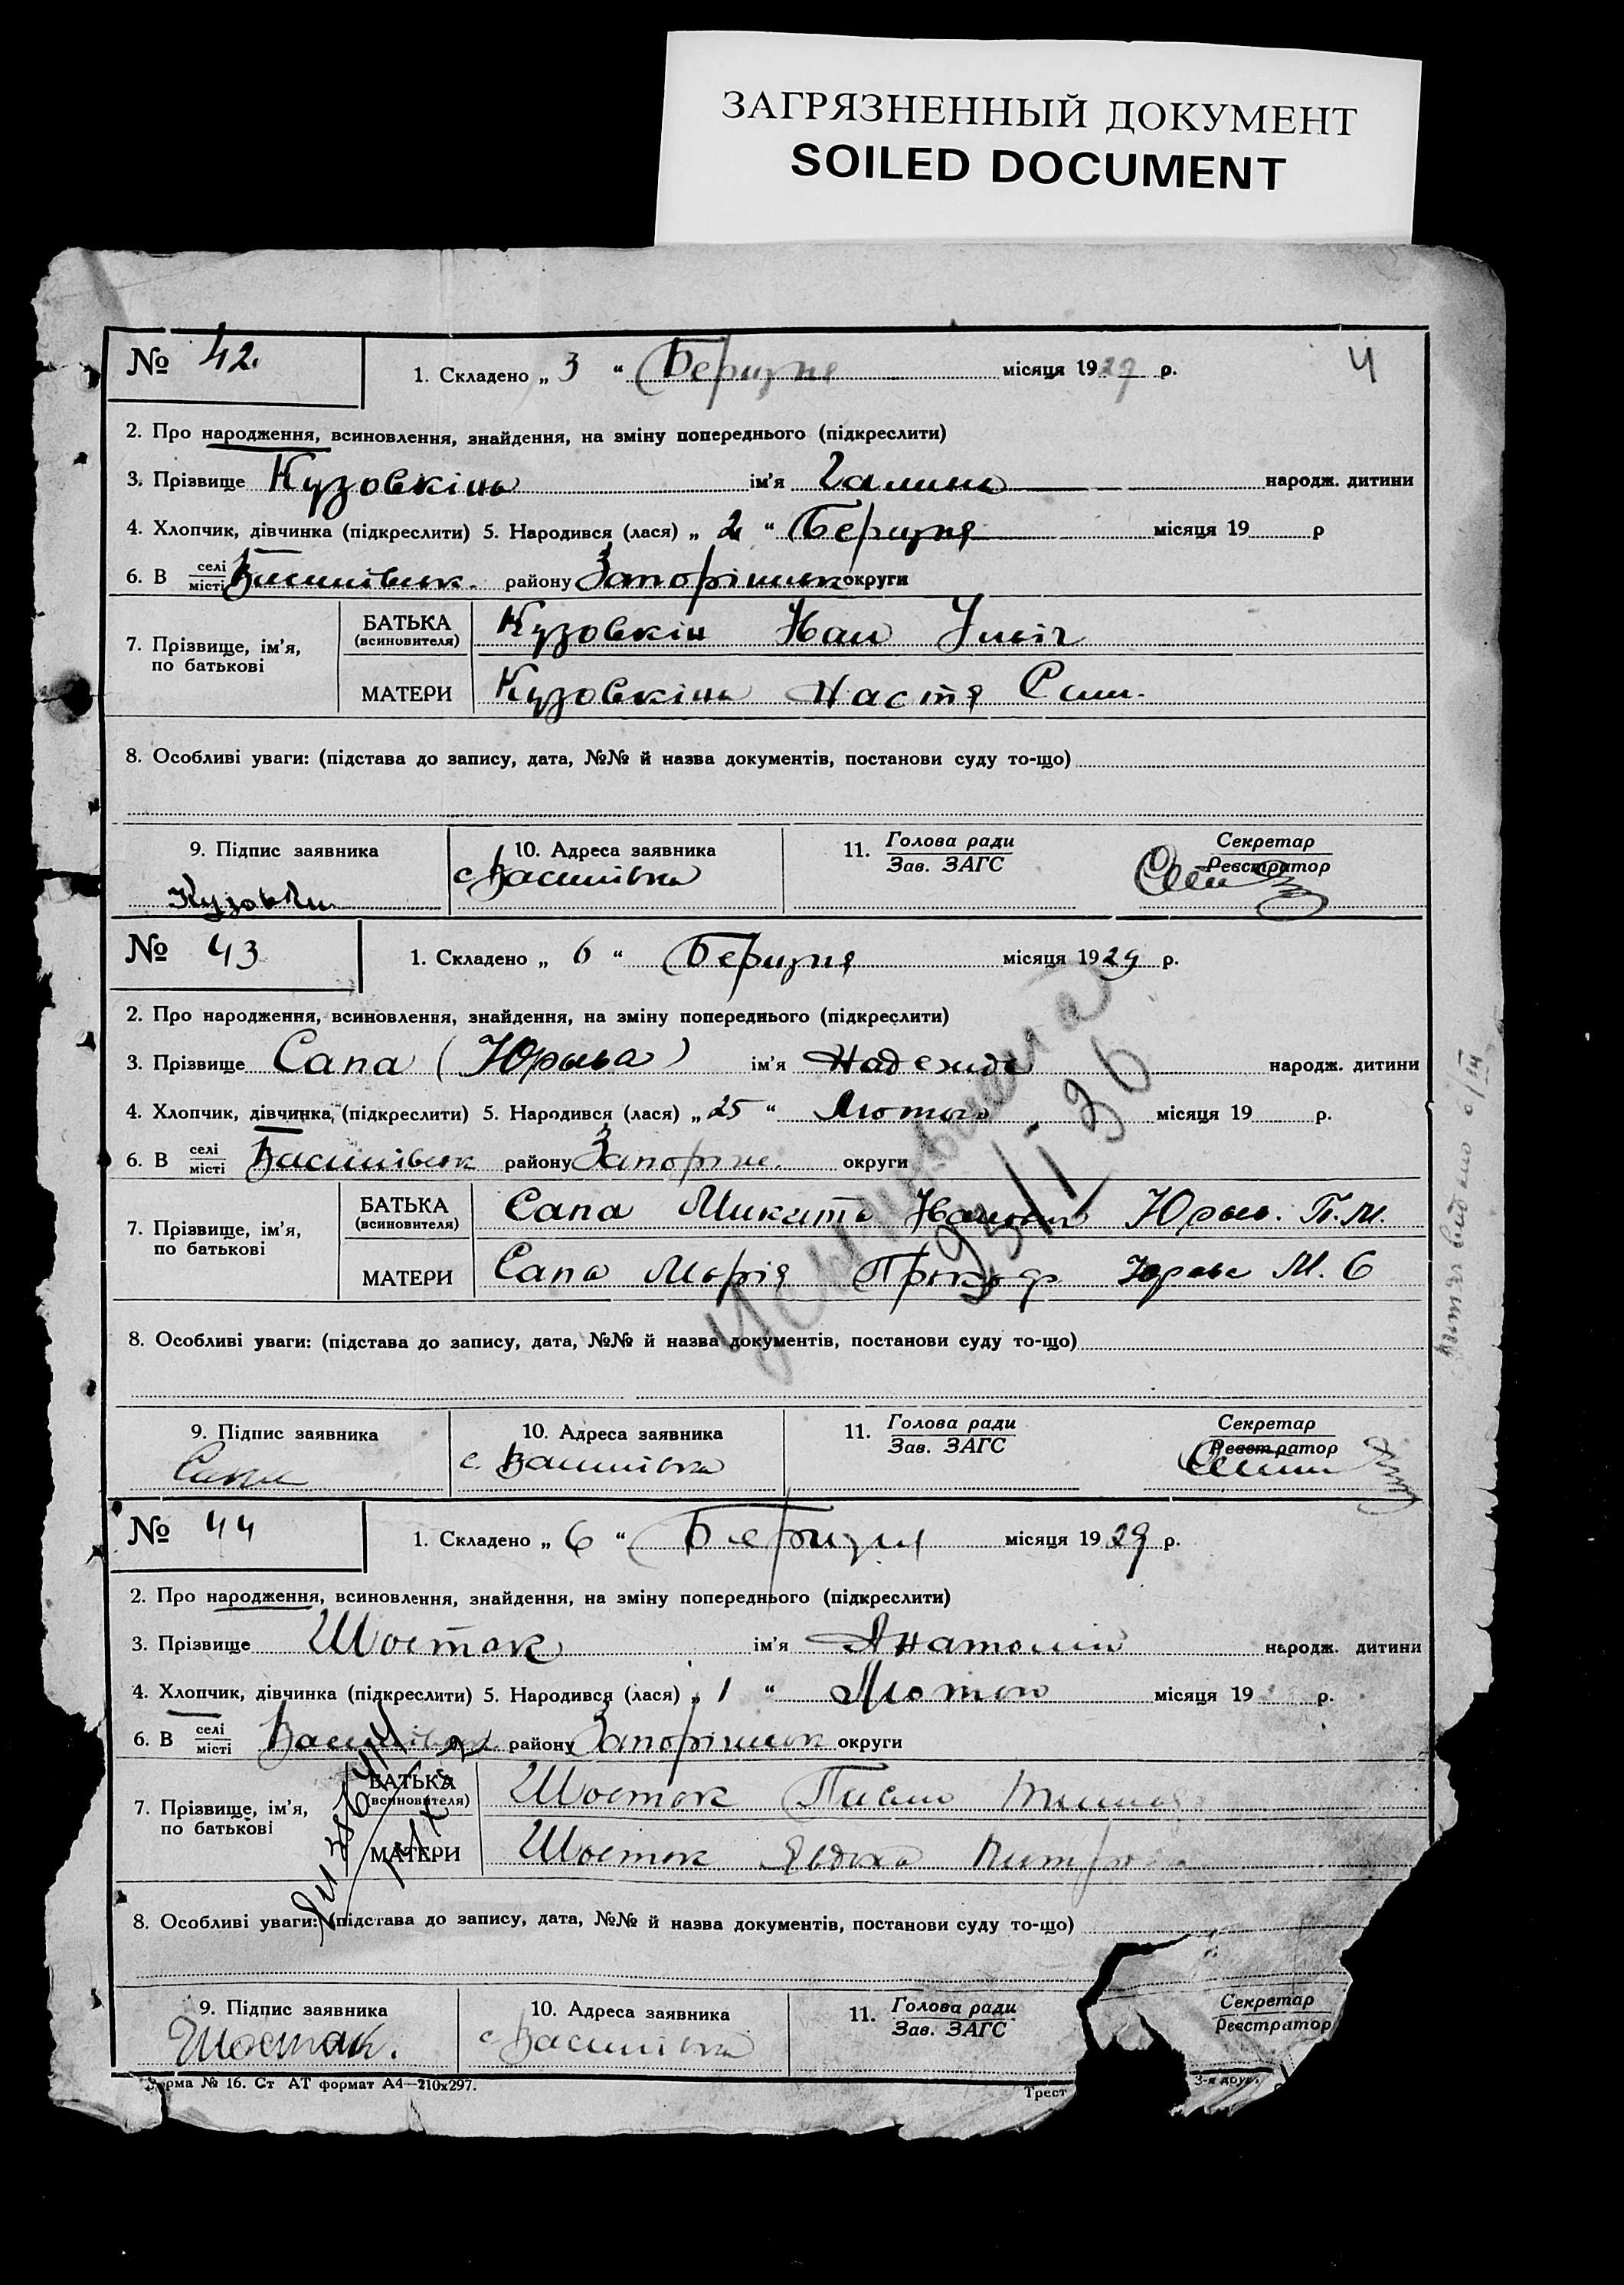 ЗАГРЯЗНЕННЫЙ ДОКУМЕНТ
SOILED DOCUMENT
№ 42. 1. Складено „ 3 “ Березня місяця 1929 р. 4
2. Про народження, всиновлення, знайдення, на зміну попереднього (підкреслити)
3. Прізвище Кузовкіна ім'я Галина народж. дитини
4. Хлопчик, дівчинка (підкреслити) 5. Народився (лася) „ 2 “ Березня місяця 19 р
6. В селі місті Василівськ. району Запоріжськ округи
7. Прізвище, ім'я, по батькові
БАТЬКА (всиновителя) Кузовкін Іван
МАТЕРИ Кузовкіна Настя
8. Особливі уваги: (підстава до запису, дата, №№ й назва документів, постанови суду то-що)
9. Підпис заявника 10. Адреса заявника 11. Голова ради Зав. ЗАГС Секретар Реєстратор
Кузовкин с Василівка
№ 43 1. Складено „ 6 “ Березня місяця 1929 р.
2. Про народження, всиновлення, знайдення, на зміну попереднього (підкреслити)
3. Прізвище Сапа (Юрьва) ім'я Надежда народж. дитини
4. Хлопчик, дівчинка, (підкреслити) 5. Народився (лася) „ 25 “ Лютого місяця 19 р.
6. В селі місті Василівськ району Запоріж. округи
7. Прізвище, ім'я, по батькові
БАТЬКА (всиновителя) Сапа Микита Іванович Юрьв. П.М.
МАТЕРИ Сапа Марія Прокоф. Юрьва М. С
8. Особливі уваги: (підстава до запису, дата, №№ й назва документів, постанови суду то-що)
9. Підпис заявника 10. Адреса заявника 11. Голова ради Зав. ЗАГС Секретар Реєстратор
Сапа с. Василівка
№ 44 1. Складено „ 6 “ Березня місяця 1929 р.
2. Про народження, всиновлення, знайдення, на зміну попереднього (підкреслити)
3. Прізвище Шосток ім'я Анатолій народж. дитини
4. Хлопчик, дівчинка (підкреслити) 5. Народився (лася) „ 1 “ Лютого місяця 19 р.
6. В селі місті Василівськ району Запоріжськ округи
7. Прізвище, ім'я, по батькові
БАТЬКА (всиновителя) Шосток
МАТЕРИ Шосток Явдоха
8. Особливі уваги: (підстава до запису, дата, №№ й назва документів, постанови суду то-що)
9. Підпис заявника 10. Адреса заявника 11. Голова ради Зав. ЗАГС Секретар Реєстратор
Шостак. с Василівка
Форма № 16. Ст АТ формат А4—210х297. Трест 3-я друк.